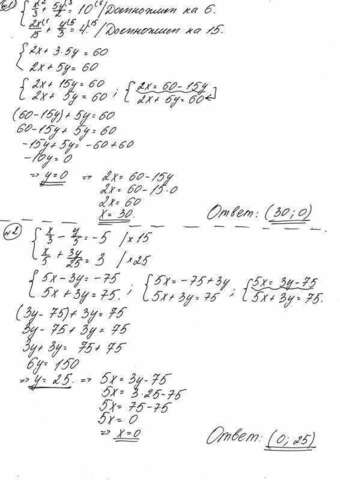 №1 { x/3 + 5y/2 = 10 / Домножим на 6.
{ 2x/15 + y/3 = 4. / Домножим на 15.
{ 2x + 3·5y = 60
{ 2x + 5y = 60
{ 2x + 15y = 60 ; { 2x = 60 - 15y
{ 2x + 5y = 60 ; { 2x + 5y = 60
(60-15y) + 5y = 60
60 - 15y + 5y = 60
-15y + 5y = -60 + 60
-10y = 0
=> y = 0 => 2x = 60 - 15y
2x = 60 - 15·0
2x = 60
x = 30. Ответ: (30; 0)
№2 { x/3 - y/5 = -5 / x15
{ x/5 + 3y/25 = 3 / x25
{ 5x - 3y = -75 ; { 5x = -75 + 3y ; { 5x = 3y - 75
{ 5x + 3y = 75. ; { 5x + 3y = 75 ; { 5x + 3y = 75.
(3y - 75) + 3y = 75
3y - 75 + 3y = 75
3y + 3y = 75 + 75
6y = 150
=> y = 25. => 5x = 3y - 75
5x = 3·25 - 75
5x = 75 - 75
5x = 0
=> x = 0 Ответ: (0; 25)